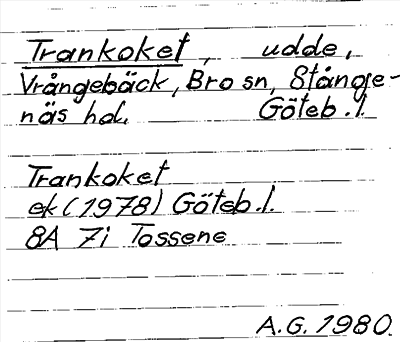 Trankoket, udde,
Vrångebäck, Bro sn, Stånge-
näs hd. Göteb. l.
Trankoket
ek (1978) Göteb. l.
8A 7i Tossene
A.G. 1980.